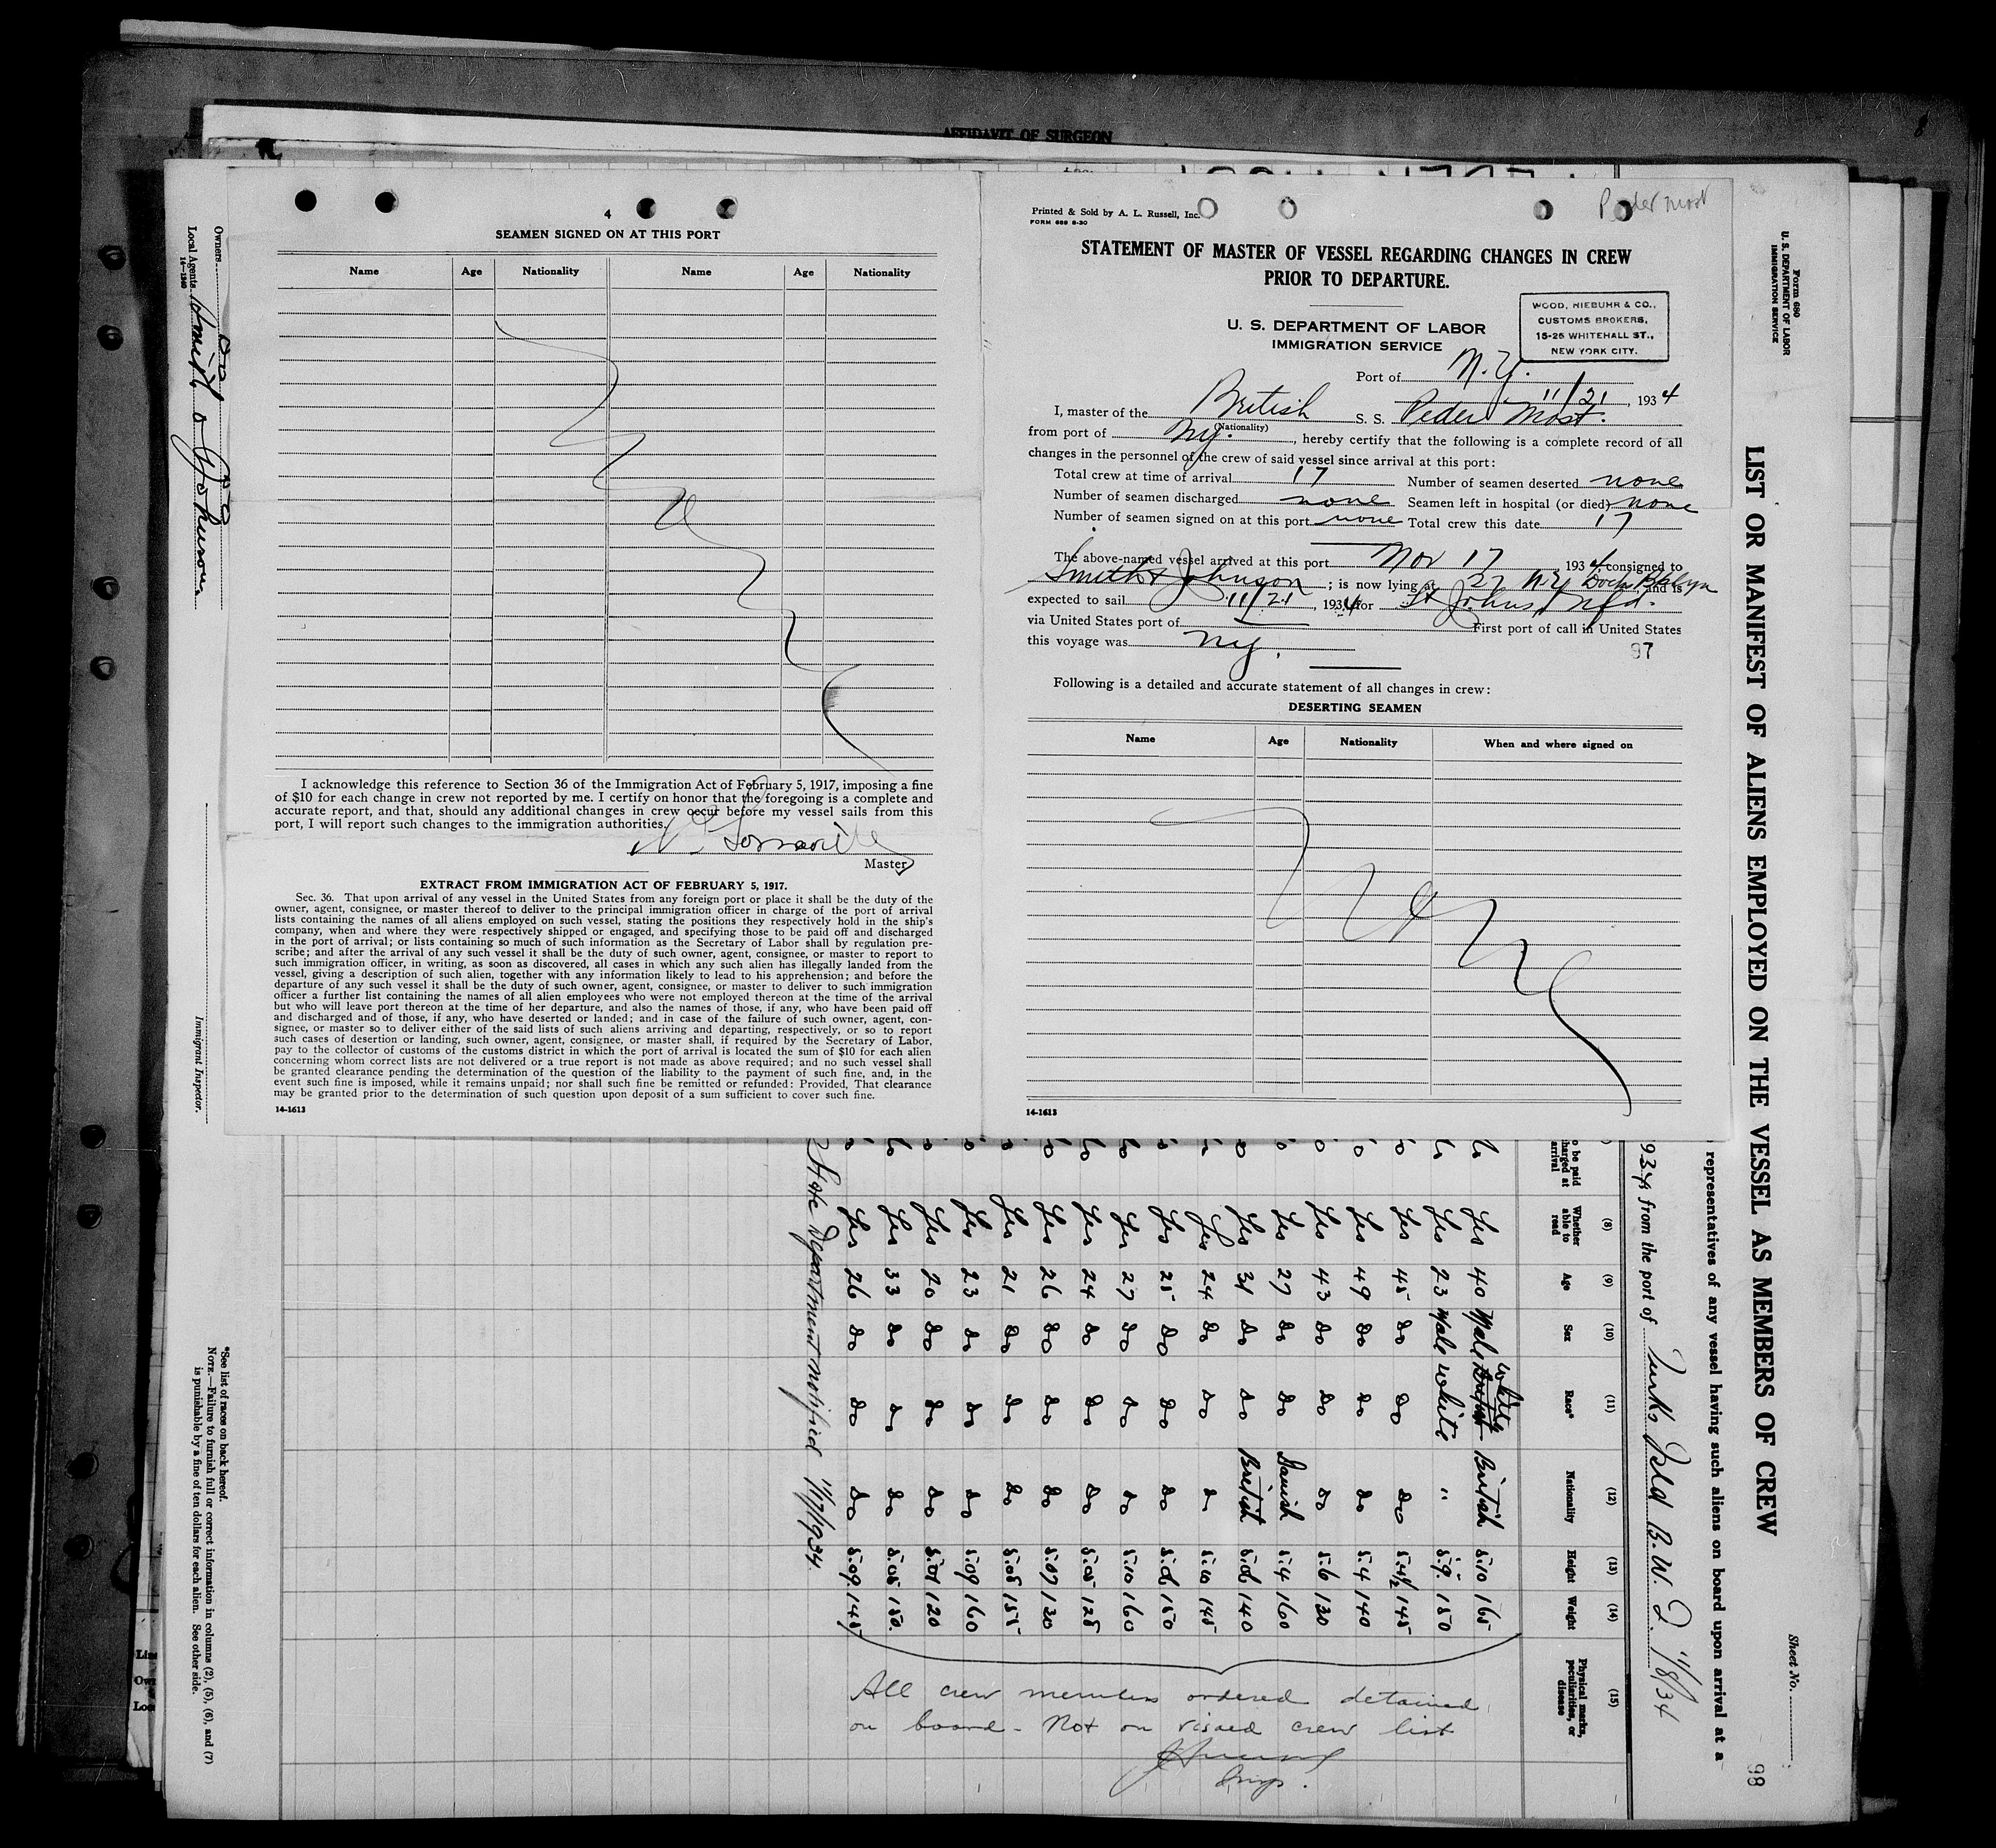 AFFIDAVIT OF SURGEON
8
4
SEAMEN SIGNED ON AT THIS PORT
Name Age Nationality Name Age Nationality
None
I acknowledge this reference to Section 36 of the Immigration Act of February 5, 1917, imposing a fine
of $10 for each change in crew not reported by me. I certify on honor that the foregoing is a complete and
accurate report, and that, should any additional changes in crew occur before my vessel sails from this
port, I will report such changes to the immigration authorities.
Master
EXTRACT FROM IMMIGRATION ACT OF FEBRUARY 5, 1917.
Sec. 36. That upon arrival of any vessel in the United States from any foreign port or place it shall be the duty of the
owner, agent, consignee, or master thereof to deliver to the principal immigration officer in charge of the port of arrival
lists containing the names of all aliens employed on such vessel, stating the positions they respectively hold in the ship's
company, when and where they were respectively shipped or engaged, and specifying those to be paid off and discharged
in the port of arrival; or lists containing so much of such information as the Secretary of Labor shall by regulation pre-
scribe; and after the arrival of any such vessel it shall be the duty of such owner, agent, consignee, or master to report to
such immigration officer, in writing, as soon as discovered, all cases in which any such alien has illegally landed from the
vessel, giving a description of such alien, together with any information likely to lead to his apprehension; and before the
departure of any such vessel it shall be the duty of such owner, agent, consignee, or master to deliver to such immigration
officer a further list containing the names of all alien employees who were not employed thereon at the time of the arrival
but who will leave port thereon at the time of her departure, and also the names of those, if any, who have been paid off
and discharged and of those, if any, who have deserted or landed; and in case of the failure of such owner, agent, con-
signee, or master so to deliver either of the said lists of such aliens arriving and departing, respectively, or so to report
such cases of desertion or landing, such owner, agent, consignee, or master shall, if required by the Secretary of Labor,
pay to the collector of customs of the customs district in which the port of arrival is located the sum of $10 for each alien
concerning whom correct lists are not delivered or a true report is not made as above required; and no such vessel shall
be granted clearance pending the determination of the question of the liability to the payment of such fine, and, in the
event such fine is imposed, while it remains unpaid; nor shall such fine be remitted or refunded: Provided, That clearance
may be granted prior to the determination of such question upon deposit of a sum sufficient to cover such fine.
14-1613
Peder Most
Printed & Sold by A. L. Russell, Inc.
FORM 689 8-30
STATEMENT OF MASTER OF VESSEL REGARDING CHANGES IN CREW
PRIOR TO DEPARTURE.
U. S. DEPARTMENT OF LABOR
IMMIGRATION SERVICE
WOOD, NIEBUHR & CO.,
CUSTOMS BROKERS,
15-25 WHITEHALL ST.,
NEW YORK CITY.
Port of N.Y.
11/21, 1934
I, master of the British S. S. Peder Most.
(Nationality)
from port of NY., hereby certify that the following is a complete record of all
changes in the personnel of the crew of said vessel since arrival at this port:
Total crew at time of arrival 17 Number of seamen deserted none
Number of seamen discharged none Seamen left in hospital (or died) none
Number of seamen signed on at this port none Total crew this date 17
The above-named vessel arrived at this port Nov 17 1934, consigned to
Smith & Johnson; is now lying at 27 N.Y Dock Bklyn, and is
expected to sail 11/21, 1934, for St Johns, Nfd.
via United States port of First port of call in United States
this voyage was NY.
97
Following is a detailed and accurate statement of all changes in crew:
DESERTING SEAMEN
Name Age Nationality When and where signed on
None
14-1613
Form 680
U. S. DEPARTMENT OF LABOR
IMMIGRATION SERVICE
LIST OR MANIFEST OF ALIENS EMPLOYED ON THE VESSEL AS MEMBERS OF CREW
Sheet No.
98
representatives of any vessel having such aliens on board upon arrival at a
934 from the port of Turks Isld B.W.I. 11/8/34
(8) (9) (10) (11) (12) (13) (14) (15)
o be paid
harged at
arrival
Whether able to read Age Sex Race* Nationality Height Weight Physical marks, peculiarities, or disease
Yes 40 Male British White British 5.10 165
Yes 23 Male White " 5.9 150
Yes 45 Do Do Do 5.4½ 145
Yes 49 Do Do Do 5.4 140
Yes 43 Do Do Do 5.6 130
Yes 27 Do Do Danish 5.4 160
Yes 31 Do Do British 140
Yes 24 Do Do Do 5.10 145
Yes 25 Do Do Do 150
Yes 27 Do Do Do 5.10 160
Yes 24 Do Do Do 5.05 125
Yes 26 Do Do Do 5.07 130
Yes 21 Do Do Do 5.08 155
Yes 23 Do Do Do 5.09 160
Yes 20 Do Do Do 5.01 120
Yes 33 Do Do Do 5.05 150
Yes 26 Do Do Do 5.09 145
State Department notified 11/17/1934.
All crew members ordered detained
on board - Not on visaed crew list
Insp.
Owners
Local Agents Smith & Johnson
14-1240
Immigrant Inspector.
*See list of races on back hereof.
NOTE.—Failure to furnish full or correct information in columns (2), (5), (6), and (7)
is punishable by a fine of ten dollars for each alien. See other side.
Line
Own
Loca